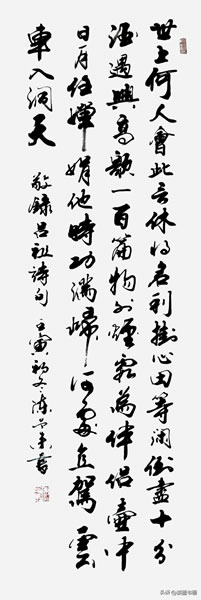 世上何人會此言休將名利掛心田等閒倒盡十分
酒遇興高歌一百篇物外煙霞為伴侶壺中
日月任嬋娟他時功滿歸何處直駕雲
車入洞天
敬錄呂祖詩句 壬寅初冬陳書